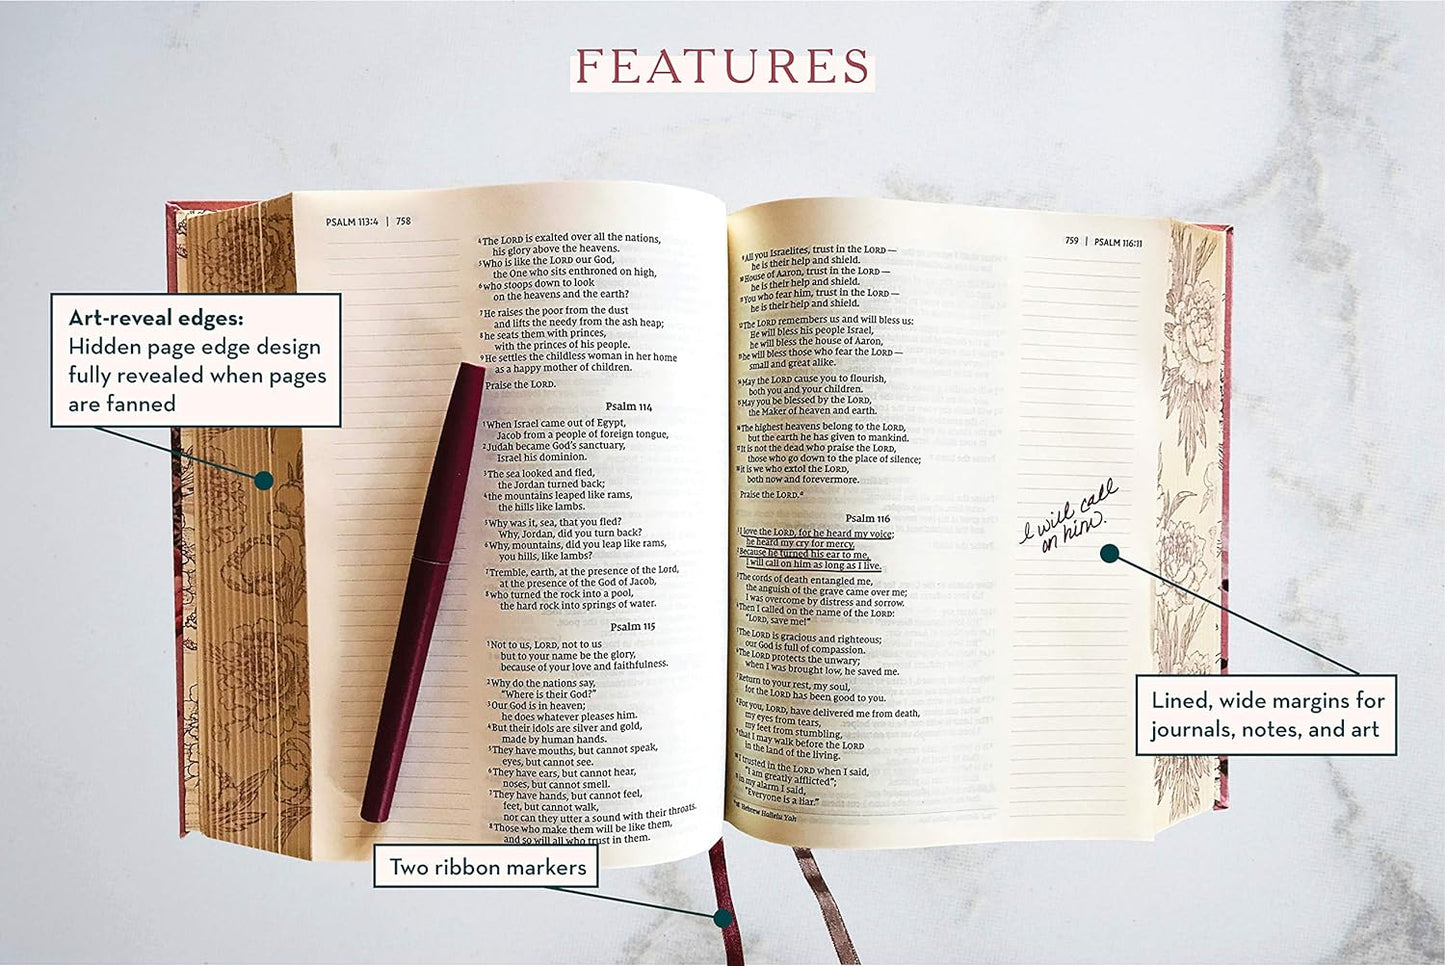 FEATURES
PSALM 113:4 | 758
4The LORD is exalted over all the nations,
his glory above the heavens.
5Who is like the LORD our God,
the One who sits enthroned on high,
6who stoops down to look
on the heavens and the earth?
7He raises the poor from the dust
and lifts the needy from the ash heap;
8he seats them with princes,
with the princes of his people.
9He settles the childless woman in her home
as a happy mother of children.
Praise the LORD.
Psalm 114
1When Israel came out of Egypt,
Jacob from a people of foreign tongue,
2Judah became God's sanctuary,
Israel his dominion.
3The sea looked and fled,
the Jordan turned back;
4the mountains leaped like rams,
the hills like lambs.
5Why was it, sea, that you fled?
Why, Jordan, did you turn back?
6Why, mountains, did you leap like rams,
you hills, like lambs?
7Tremble, earth, at the presence of the Lord,
at the presence of the God of Jacob,
8who turned the rock into a pool,
the hard rock into springs of water.
Psalm 115
1Not to us, LORD, not to us
but to your name be the glory,
because of your love and faithfulness.
2Why do the nations say,
"Where is their God?"
3Our God is in heaven;
he does whatever pleases him.
4But their idols are silver and gold,
made by human hands.
5They have mouths, but cannot speak,
eyes, but cannot see.
6They have ears, but cannot hear,
noses, but cannot smell.
7They have hands, but cannot feel,
feet, but cannot walk,
nor can they utter a sound with their throats.
8Those who make them will be like them,
and so will all who trust in them.
759 | PSALM 116:11
9All you Israelites, trust in the LORD—
he is their help and shield.
10House of Aaron, trust in the LORD—
he is their help and shield.
11You who fear him, trust in the LORD—
he is their help and shield.
12The LORD remembers us and will bless us:
He will bless his people Israel,
he will bless the house of Aaron,
13he will bless those who fear the LORD—
small and great alike.
14May the LORD cause you to flourish,
both you and your children.
15May you be blessed by the LORD,
the Maker of heaven and earth.
16The highest heavens belong to the LORD,
but the earth he has given to mankind.
17It is not the dead who praise the LORD,
those who go down to the place of silence;
18it is we who extol the LORD,
both now and forevermore.
Praise the LORD.a
Psalm 116
1I love the LORD, for he heard my voice;
he heard my cry for mercy.
2Because he turned his ear to me,
I will call on him as long as I live.
3The cords of death entangled me,
the anguish of the grave came over me;
I was overcome by distress and sorrow.
4Then I called on the name of the LORD:
"LORD, save me!"
5The LORD is gracious and righteous;
our God is full of compassion.
6The LORD protects the unwary;
when I was brought low, he saved me.
7Return to your rest, my soul,
for the LORD has been good to you.
8For you, LORD, have delivered me from death,
my eyes from tears,
my feet from stumbling,
9that I may walk before the LORD
in the land of the living.
10I trusted in the LORD when I said,
"I am greatly afflicted";
11in my alarm I said,
"Everyone is a liar."
a18 Hebrew Hallelu Yah
I will call
on him.
Art-reveal edges:
Hidden page edge design
fully revealed when pages
are fanned
Lined, wide margins for
journals, notes, and art
Two ribbon markers